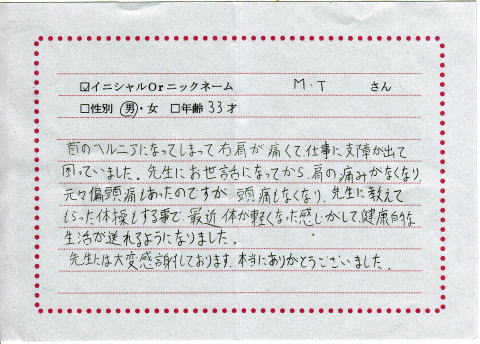 ☑イニシャルOrニックネーム M・T さん
□性別 男・女 □年齢 33才
首のヘルニアになってしまって右肩が痛くて仕事に支障が出て
困っていました。先生にお世話になってから、肩の痛みがなくなり、
元々偏頭痛もあったのですが、頭痛もなくなり、先生に教えて
もらった体操もする事で、最近体が軽くなった感じがして、健康的な
生活が送れるようになりました。
先生には大変感謝しております。本当にありがとうございました。